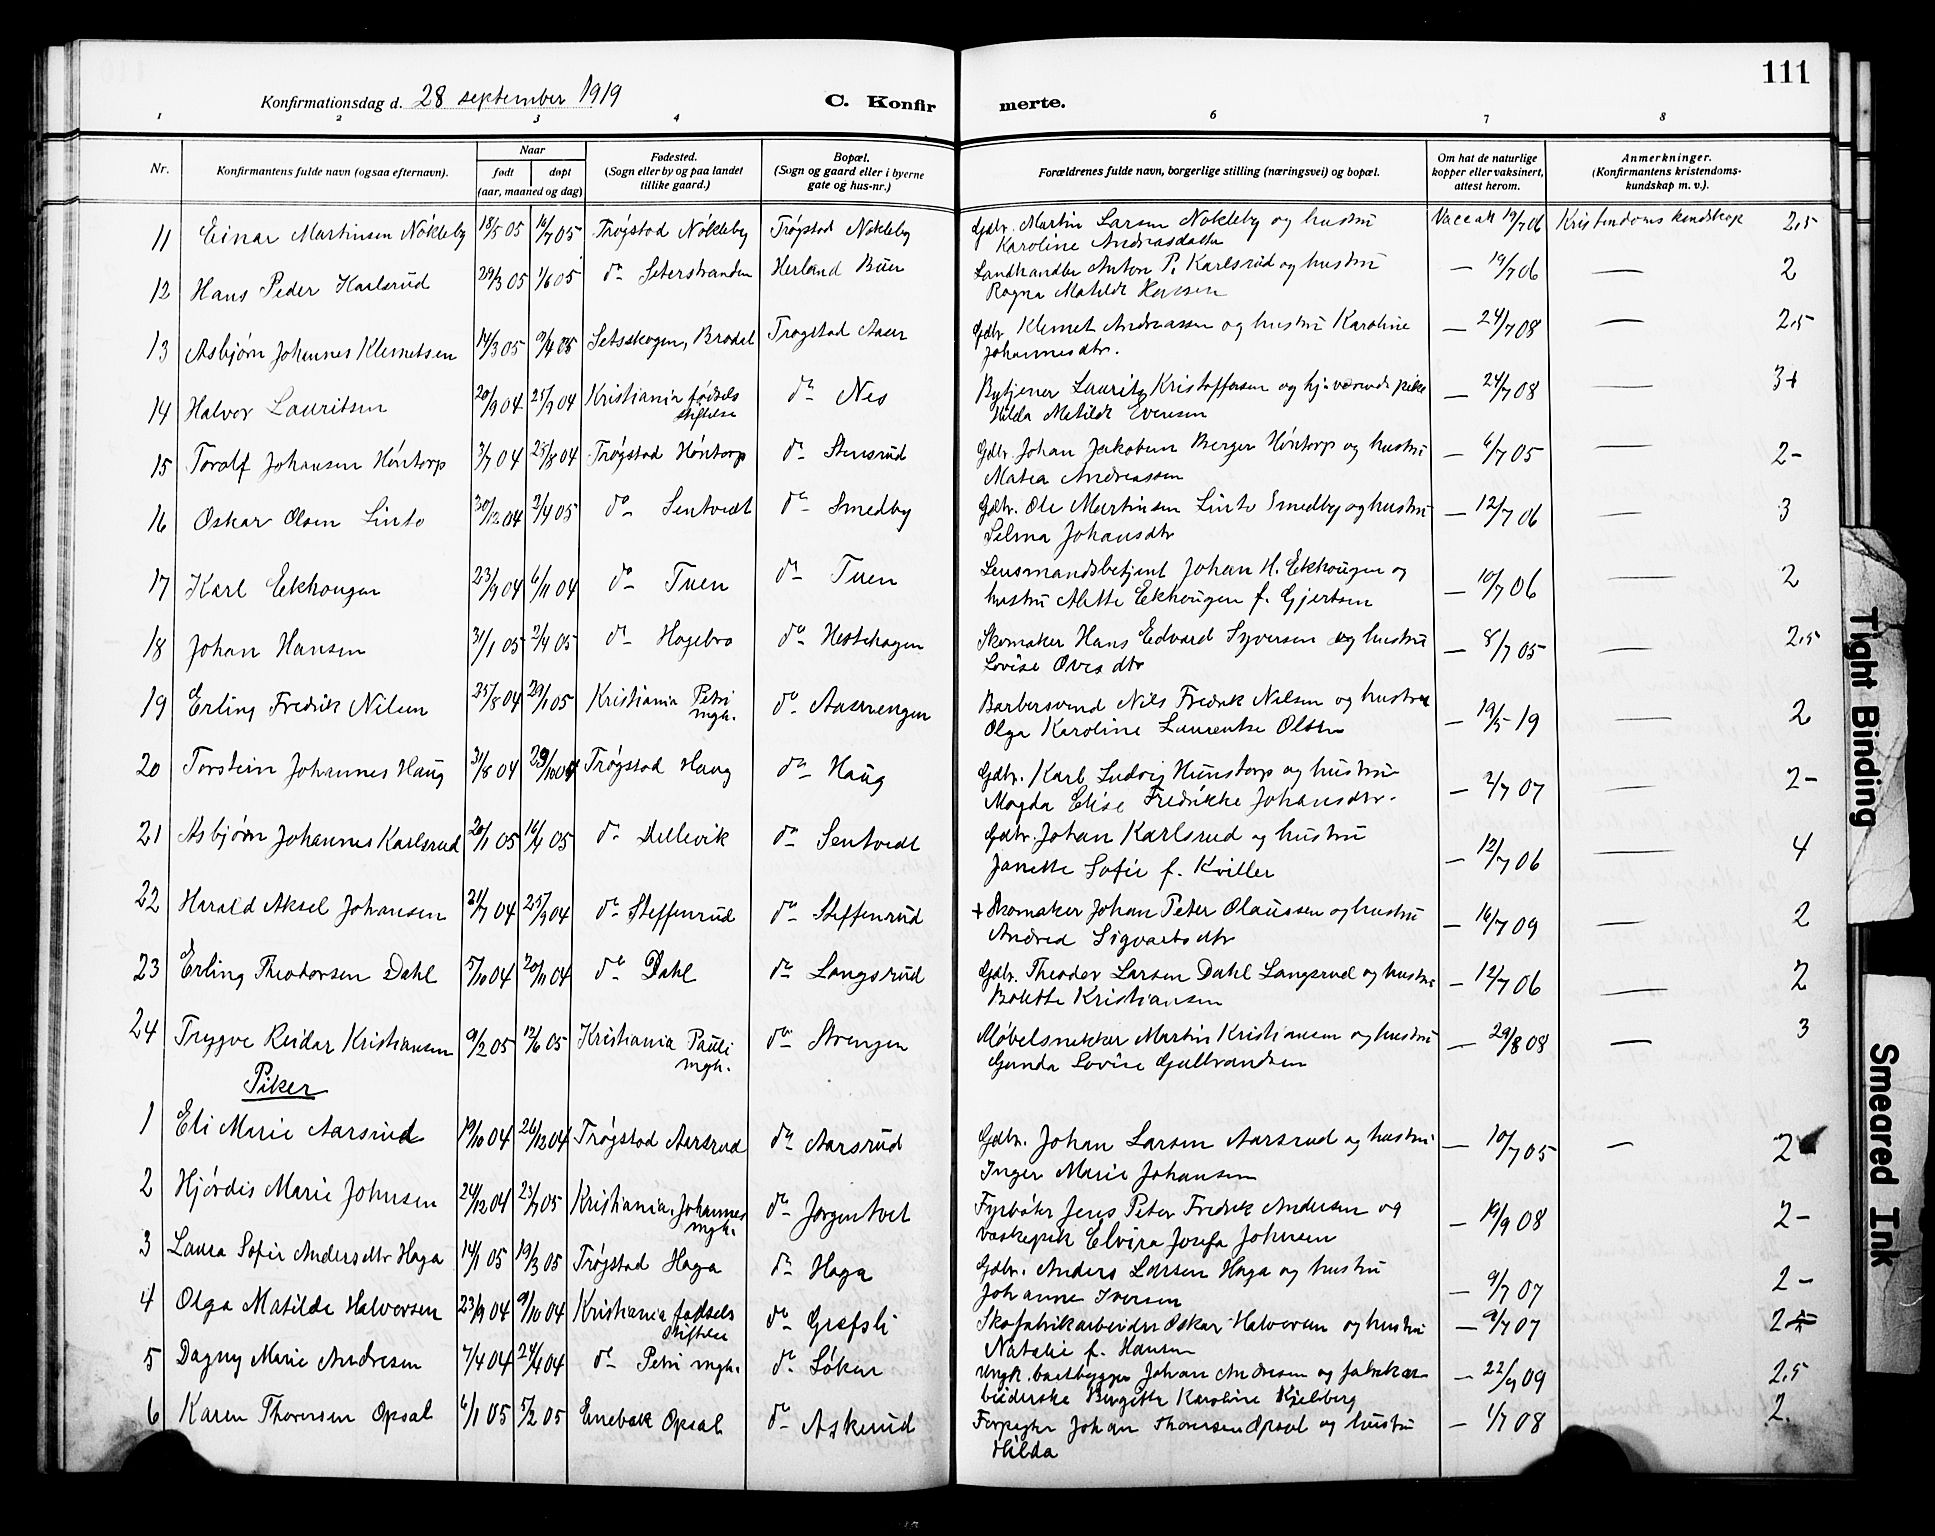 111
Konfirmationsdag d. 28 september 1919
C. Konfir merte.
1 2 3 4 6 7 8
Nr.
Konfirmantens fulde navn (ogsaa efternavn).
Naar
født døpt
(aar, maaned og dag)
Fødested.
(Sogn eller by og paa landet
tillike gaard.)
Bopæl.
(Sogn og gaard eller i byerne
gate og hus-nr.)
Forældrenes fulde navn, borgerlige stilling (næringsvei) og bopæl.
Om hat de naturlige
kopper eller vaksinert,
attest herom.
Anmerkninger.
(Konfirmantens kristendoms-
kundskap m. v.).
11 Einar Martinsen Nökleby 18/5 05 16/7 05 Trøgstad Nökleby Trøgstad Nokleby Gdbr. Martin Larsen Nokleby og hustru Vacc att 19/7 06 Kristendoms kundskap 2,5
Karoline Andreasdatter
12 Hans Peder Karlsrud 29/3 05 1/6 05 do Seterstranden Herland Buer Landhandler Anton P. Karlsrud og hustru — 19/7 06 — 2
Ragna Matilde Hansen
13 Asbjørn Johannes Klemetsen 14/3 05 9/4 05 Setskogen, Bradal Trøgstad Aaser Gdbr. Klemet Andreassen og hustru Karoline — 24/7 08 — 2,5
Johannesdtr.
14 Halvor Lauritsen 20/9 04 25/9 04 Kristiania fødsels do Nes Bytjener Lauritz Kristoffersen og hj.værende pike — 24/7 08 — 3+
stiftelse Hilda Matilde Evensen
15 Toralf Johansen Höntorp 3/7 04 25/8 04 Trøgstad Höntorp do Stensrud Gdbr. Johan Jakobsen Berger Höntorp og hustru — 6/7 05 — 2-
Matea Andreassen
16 Oskar Olsen Linto 30/12 04 2/4 05 do Sentvedt do Smedby Gdbr. Ole Martinsen Linto Smedby og hustru — 12/7 06 — 3
Selma Johansdtr
17 Karl Ekhougen 23/9 04 6/11 04 do Tuen do Tuen Lensmandsbetjent Johan H. Ekhougen og — 10/7 06 — 2
hustru Alette Ekhougen f. Gjertsen
18 Johan Hansen 31/1 05 2/4 05 do Hagebro do Hestehagen Skomaker Hans Edvard Syversen og hustru — 8/7 05 — 2,5
Lovise Ovesdtr
19 Erling Fredrik Nilsen 25/8 04 29/1 05 Kristiania Petri do Aaserengen Barbersvend Nils Fredrik Nilsen og hustru — 19/5 19 — 2
mgh. Olga Karoline Laurentse Olsen
20 Torstein Johannes Haug 31/8 04 23/10 04 Trøgstad Haug do Haug Gdbr. Karl Ludvig Hunstorp og hustru — 2/7 07 2-
Magda Elise Fredrikke Johansdtr.
21 Asbjørn Johannes Karlsrud 20/1 05 16/4 05 do Dillevik do Sentvedt Gdbr. Johan Karlsrud og hustru — 12/7 06 — 4
Janette Sofie f. Kviller
22 Harald Aksel Johansen 21/7 04 25/9 04 do Steffenrud do Steffenrud + Skomaker Johan Peter Olaussen og hustru — 16/7 09 — 2
Andrea Sigvartsdtr
23 Erling Theodorsen Dahl 5/10 04 20/11 04 do Dahl do Langsrud Gdbr. Theodor Larsen Dahl Langsrud og hustru — 12/7 06 — 2
Bolette Kristiansen
24 Trygve Reidar Kristiansen 9/2 05 12/6 05 Kristiania Pauli do Strengen Møbelsnekker Martin Kristiansen og hustru — 29/8 08 — 3
mgh. Gunda Lovise Gulbrandsen
Piker
1 Eli Marie Aarsrud 19/10 04 26/12 04 Trøgstad Aarsrud do Aarsrud Gdbr. Johan Larsen Aarsrud og hustru — 10/7 05 — 2
Inger Marie Johansen
2 Hjördis Marie Johnsen 24/12 04 23/7 05 Kristiania. Johannes do Jørgentvet Fyrbøter Jens Peter Fredrik Andersen og — 19/9 08 2-
mgh. vaskepike Elvira Josefa Johnsen
3 Laura Sofie Andersdtr Haga 14/1 05 19/3 05 Trøgstad Haga do Haga Gdbr. Anders Larsen Haga og hustru — 9/7 07 2-
Johanne Iversen
4 Olga Matilde Halvorsen 23/9 04 9/10 04 Kristiania fødsels do Grefsli Skofabrikarbeider Oskar Halvorsen og hustru — 9/7 07 2
stiftelse Natalie f. Hansen
5 Dagny Marie Andresen 7/4 04 24/4 04 do Petri mgh. do Løken Ungk. baatbygger Johan Andresen og fabrikar- — 22/9 09 2,5
beiderske Birgitte Karoline Kjelberg
6 Karen Thoresen Opsal 6/1 05 5/2 05 Enebak Opsal do Askerud Forpagter Johan Thoresen Opsal og hustru — 1/7 08 2.
Hilda
Tight Binding
Smeared Ink